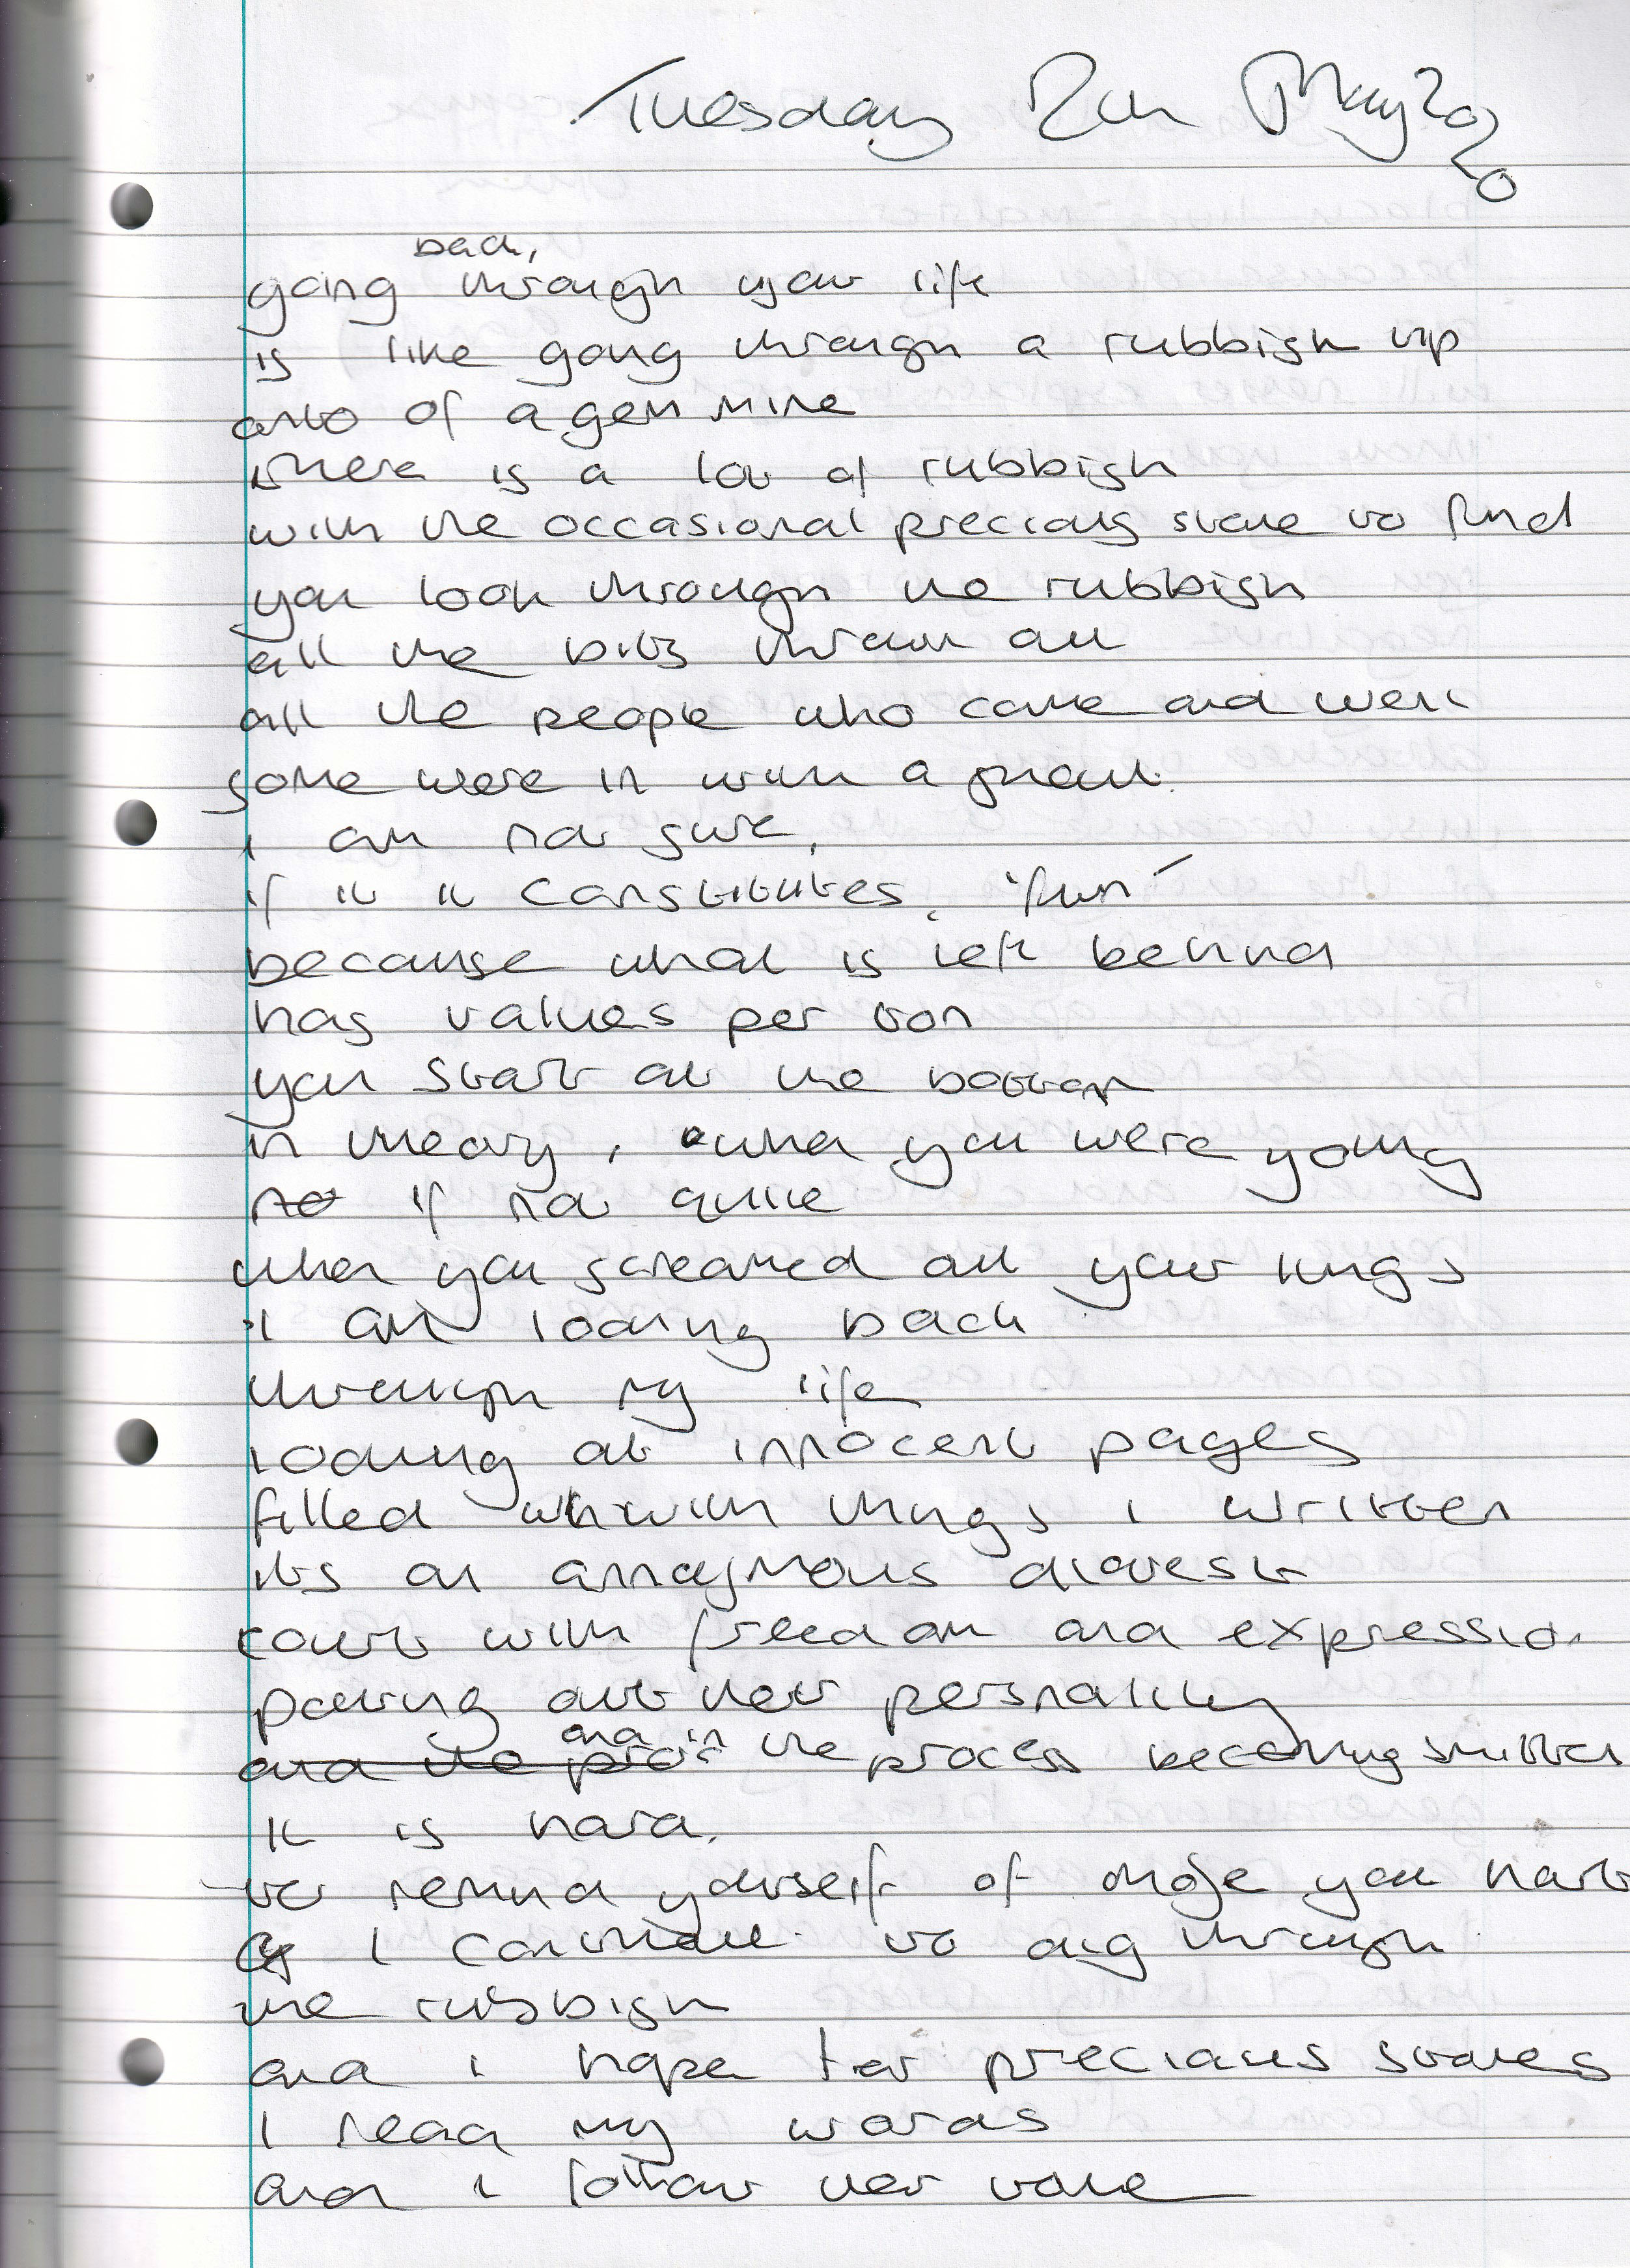 Tuesday 12th May 2020
back,
going through your life
is like going through a rubbish tip
of a gem mine
there is a lot of rubbish
with the occasional precious stone to find
you look through the rubbish
all the bits thrown out
all the people who came and went
some were in with a
i am not sure,
if it constitutes, 'fun'
because what is left behind
has values per ton
you start at the bottom
in theory, when you were young
if not quite
when you screamed out your lungs
i am looking back
through my life
looking at innocent pages
filled with things i written
its an anonymous
with freedom and expression
out their personality
and in the process becoming smitten
it is hard,
to remind yourself of those you hurt
I continue to dig through
the rubbish
and i hope for precious stones
I read my words
and i follow their tone